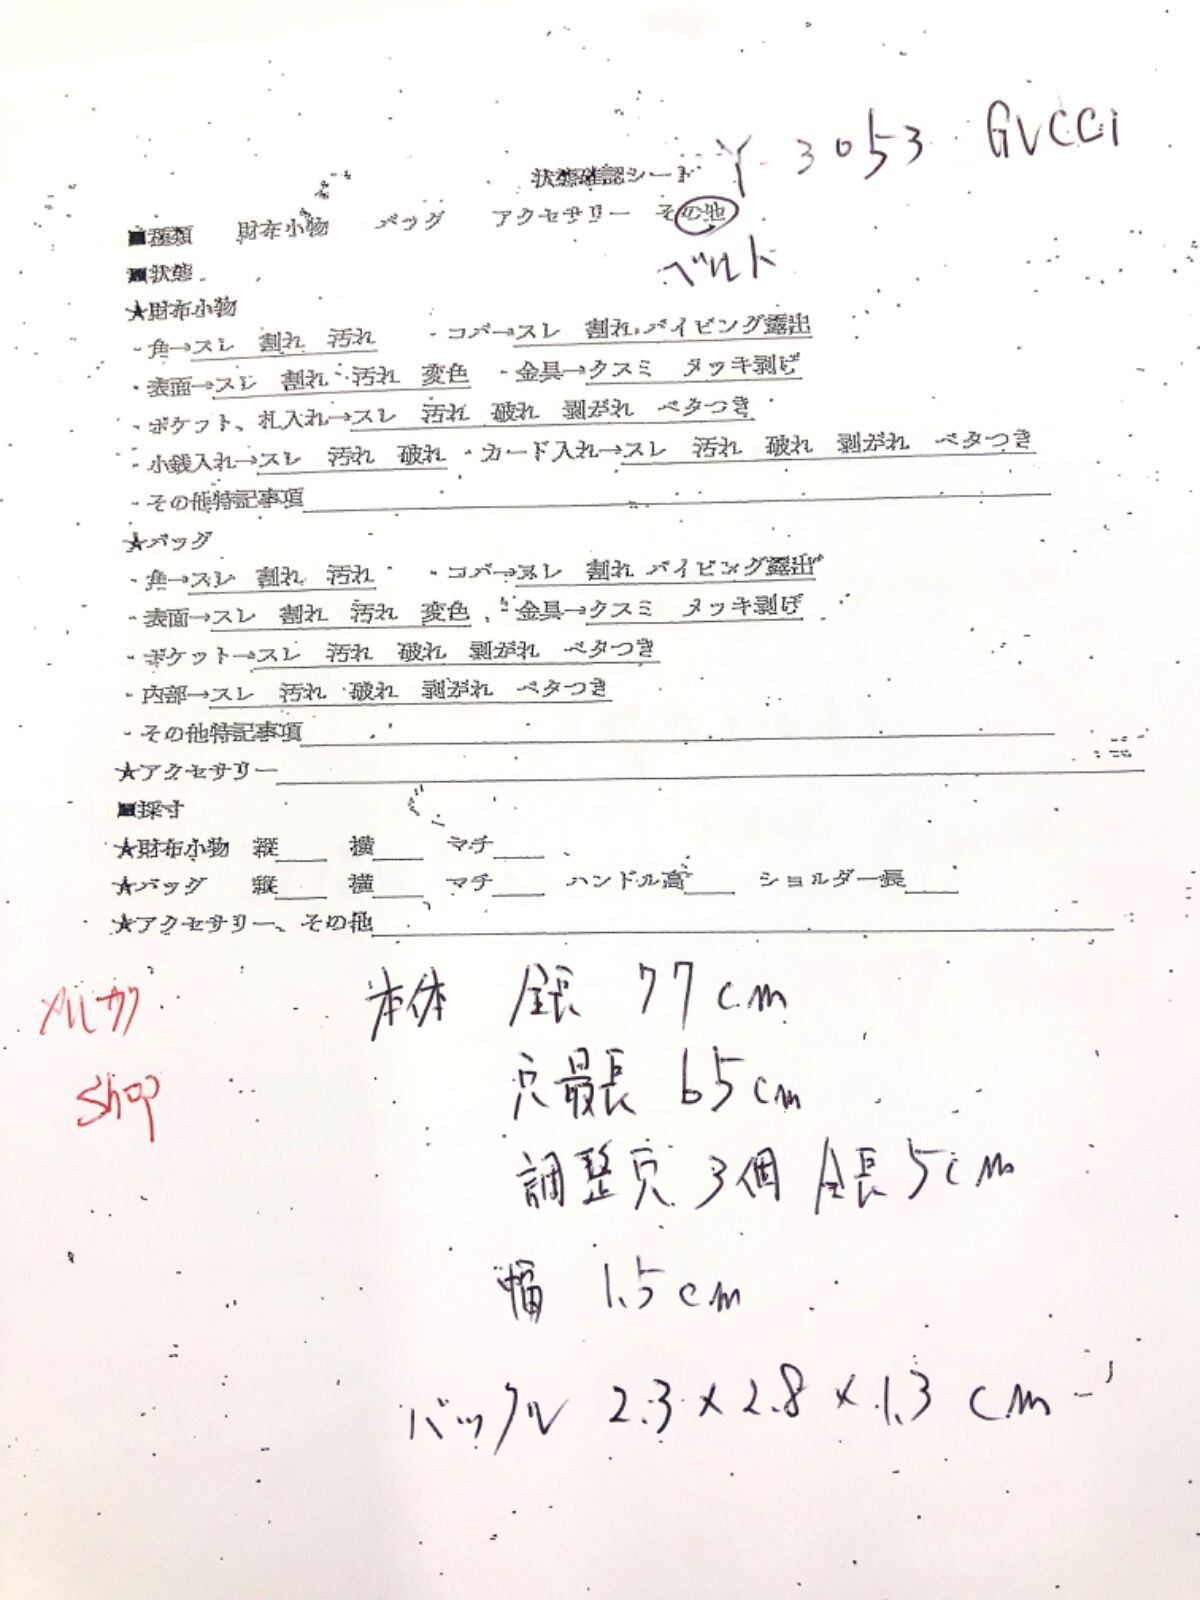 Y-3053 GUCCi
状態確認シート
■種類 財布小物 バッグ アクセサリー その他
ベルト
■状態
★財布小物
・角→スレ 割れ 汚れ ・コバ→スレ 割れ パイピング露出
・表面→スレ 割れ 汚れ 変色 ・金具→クスミ メッキ剥げ
・ポケット、札入れ→スレ 汚れ 破れ 剥がれ ベタつき
・小銭入れ→スレ 汚れ 破れ ・カード入れ→スレ 汚れ 破れ 剥がれ ベタつき
・その他特記事項
★バッグ
・角→スレ 割れ 汚れ ・コバ→スレ 割れ パイピング露出
・表面→スレ 割れ 汚れ 変色 ・金具→クスミ メッキ剥げ
・ポケット→スレ 汚れ 破れ 剥がれ ベタつき
・内部→スレ 汚れ 破れ 剥がれ ベタつき
・その他特記事項
★アクセサリー
■採寸
★財布小物 縦 横 マチ
★バッグ 縦 横 マチ ハンドル高 ショルダー長
★アクセサリー、その他
メルカリ
Shop
本体 全長 77cm
穴最長 65cm
調整穴 3個 全長5cm
幅 1.5cm
バックル 2.3×2.8×1.3cm